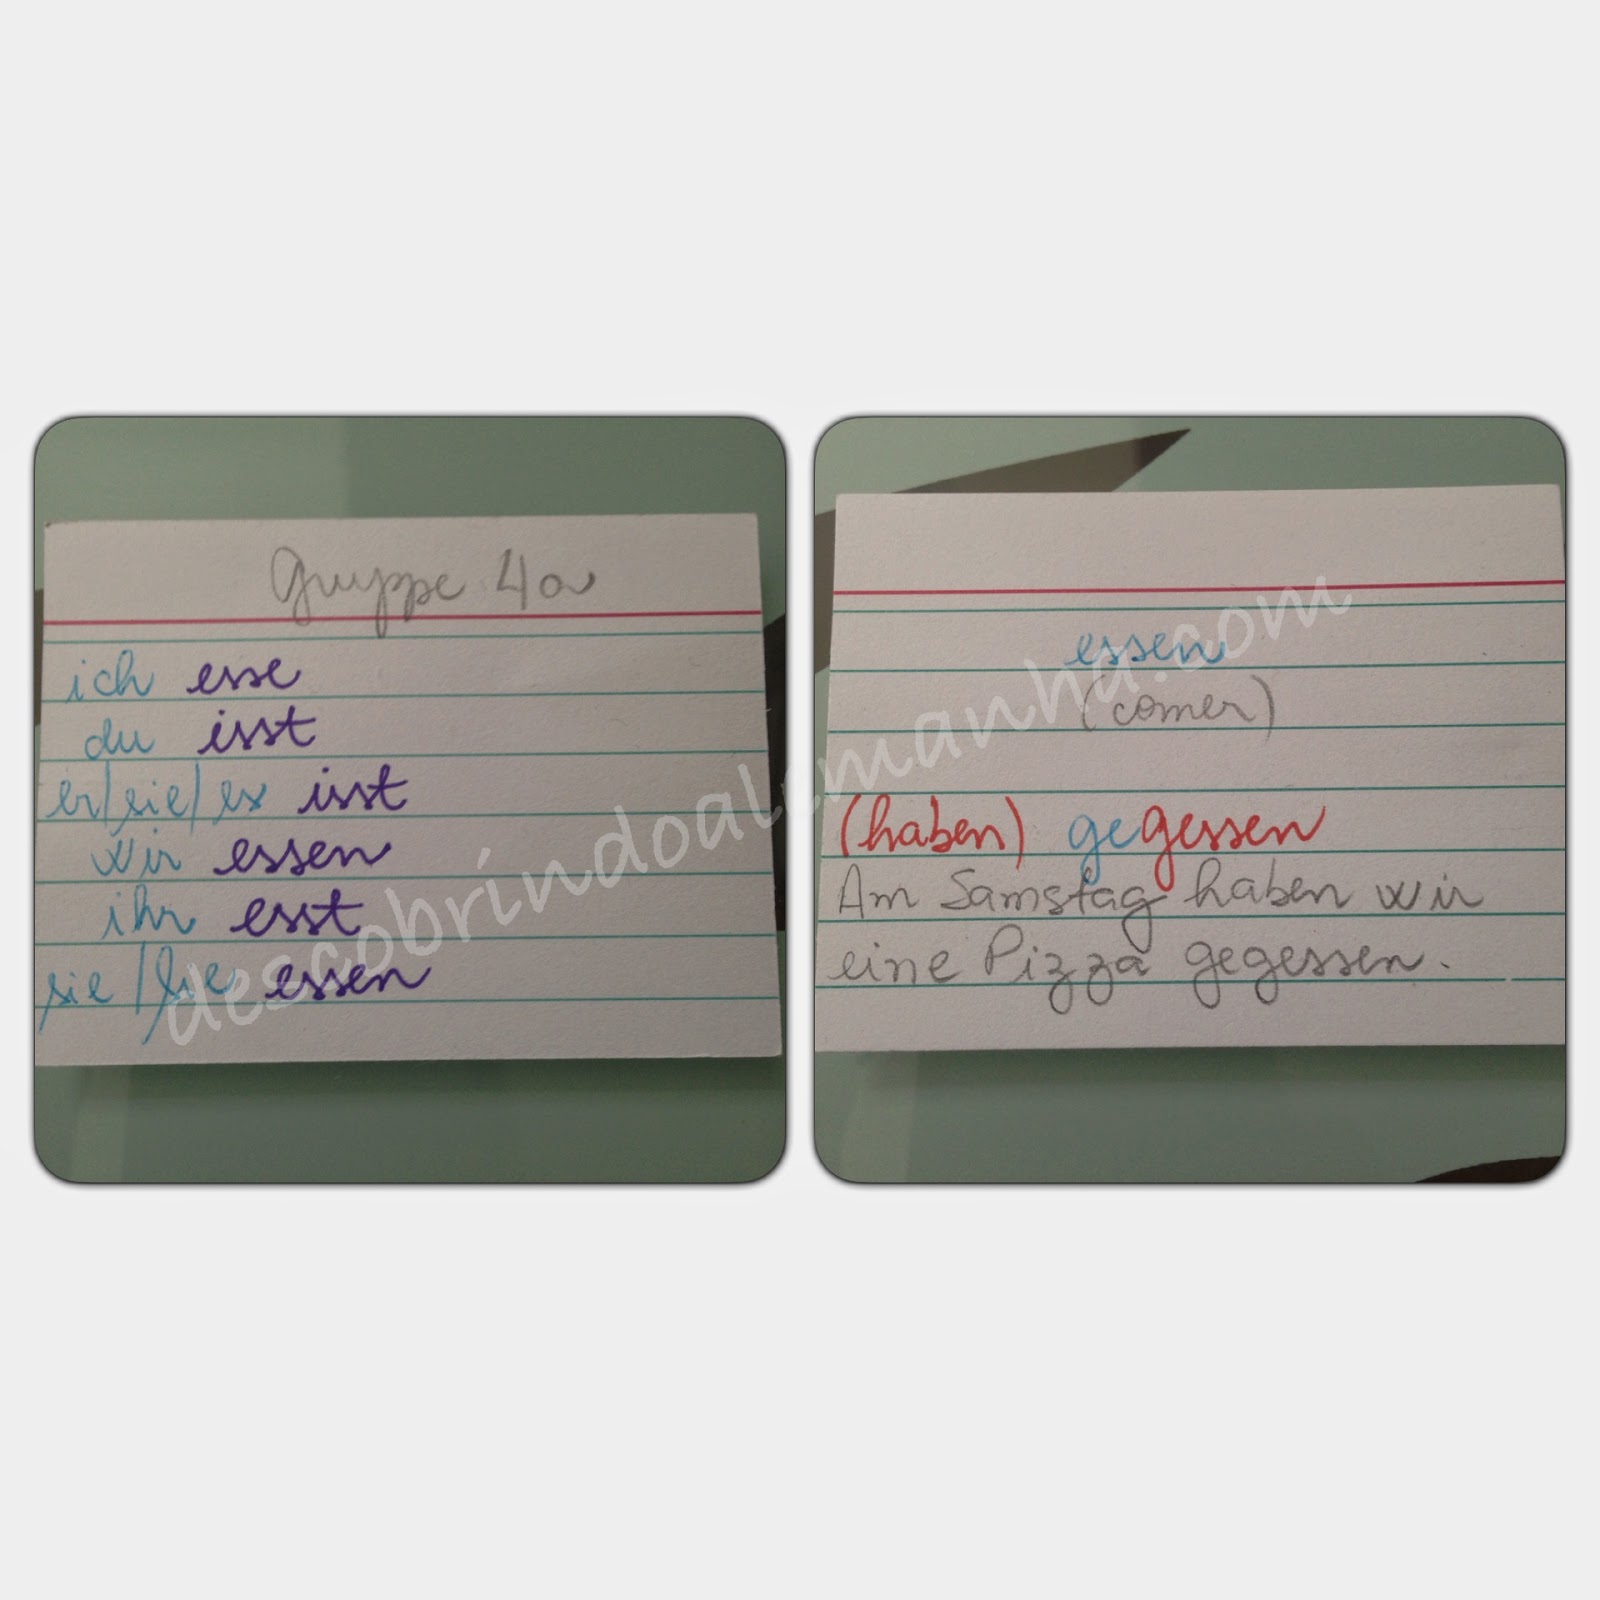 Gruppe 4a
ich esse
du isst
er/sie/es isst
wir essen
ihr esst
sie/Sie essen
essen
(comer)
(haben) gegessen
Am Samstag haben wir
eine Pizza gegessen.
descobrindoalemanha.com